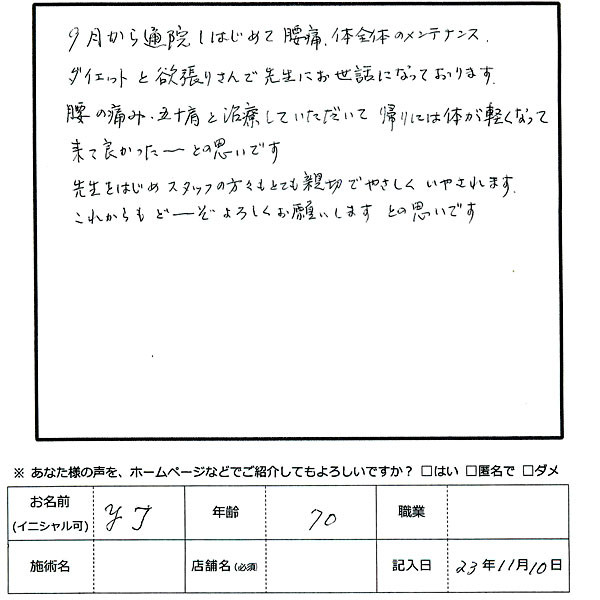 9月から通院しはじめて腰痛、体全体のメンテナンス、
ダイエットと欲張りさんで先生にお世話になっております。
腰の痛み・五十肩と治療していただいて 帰りには体が軽くなって
来て良かったーとの思いです
先生をはじめスタッフの方々もとても親切でやさしくいやされます。
これからもどーぞよろしくお願いします との思いです
※ あなた様の声を、ホームページなどでご紹介してもよろしいですか？ □はい □匿名で □ダメ
お名前 (イニシャル可) YJ 年齢 70 職業
施術名 店舗名(必須) 記入日 23年11月10日